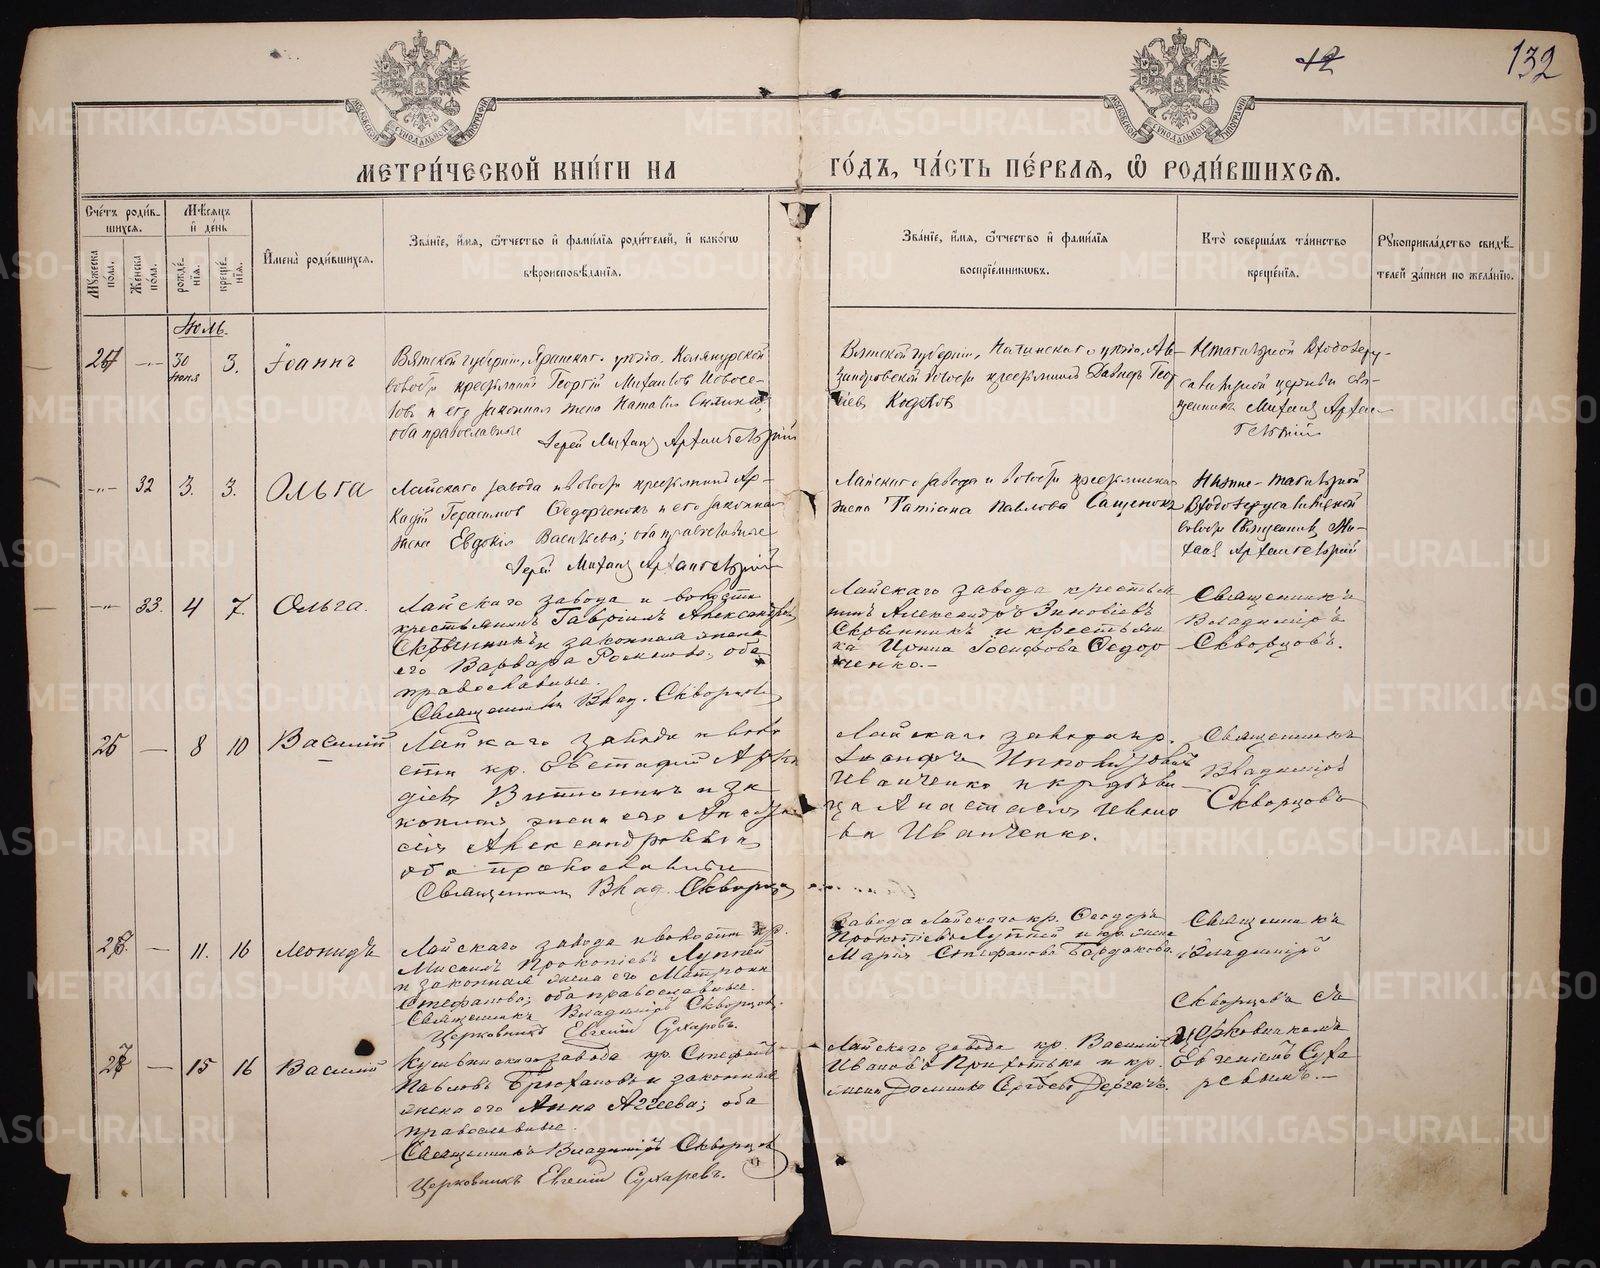 132
12
МЕТРИ́ЧЕСКОЙ КНИ́ГИ НА ГО́ДЪ, ЧА́СТЬ ПЕ́РВАЯ, Ѿ РОДИ́ВШИХСЯ.
Сче́тъ роди́вшихся.
Му́жеска по́ла.
Же́нска по́ла.
Мѣ́сяцъ и де́нь
рожде́нія.
креще́нія.
И҆мена̀ роди́вшихся.
Зва́ніе, и҆́мя, ѻ҆́тчество и҆ фами́лія роди́телей, и҆ како́гѡ
вѣроисповѣ́данія.
Зва́ніе, и҆́мя, ѻ҆́тчество и҆ фами́лія
воспріе́мникѡвъ.
Кто̀ соверша́лъ та́инство
креще́нія.
Рꙋкоприкла́дство свидѣ́-
телей за́писи по жела́нію.
Іюль.
30 Іюня
3.
Іоаннъ
Вятской губерніи, Яранскаго уѣзда, Кологурской
волости крестьянинъ Георгій Михаиловъ Новосе-
ловъ и его законная жена Наталія
оба православные
Іерей Михаилъ Архангельскій
Вятской губерніи, уѣзда,
волости крестьянинъ Давидъ Геор-
гіевъ
Входоіеру-
салимской церкви свя-
щенникъ МихаилъАрхан-
гельскій
32
3.
3.
Ольга
Лайскаго завода и волости крестьянинъ Ар-
кадій Герасимовъ Федорченокъ и его законная
жена Евдокія Васильева; оба православные
Іерей Михаилъ Архангельскій
Лайскаго завода и волости крестьянская
жена Татіана Павлова Сащенокъ
Нижне-тагильской
Входоіерусалимской
Священникъ Ми-
хаилъ Архангельскій
33.
4
7.
Ольга.
Лайскаго завода и волости
крестьянинъ Гавріилъ Александровъ
Скрынникъ и законная жена
его Варвара Романова; оба
православные.
Священникъ Влад. Скворцовъ
Лайскаго завода крестья
нинъ Александръ Зиновіевъ
Скрынникъ и крестьян
ка Ирина Іосифова Федор
ченко.—
Священникъ
Владиміръ
Скворцовъ.
8
10
Василій
Лайскаго завода и воло
сти кр. Евстафій Арка
діевъ и за
конная жена его Анаста
сія Александровна
оба православные
Священникъ Влад. Скворцовъ
Лайскаго завода кр.
Иванченко и кр. дѣви-
ца Анастасія
ва Иванченко.
Священникъ
Владиміръ
Скворцовъ
11.
16
Леонидъ
Лайскаго завода и волости кр.
Прокопіевъ Луппей
и законная жена его Матрона
Стефанова; оба православные.
Священникъ Владиміръ Скворцовъ.
Церковникъ Евгеній Сухаревъ.
Завода Лайскаго кр. Феодоръ
Прокопіевъ Луппей и кр. жена
Марія Стефанова Бардакова.
Священникъ
Владиміръ
Скворцовъ съ
церковникомъ
Евгеніемъ Суха
ревымъ.—
15
16
Василій
Кушвинскаго завода кр. Стефанъ
Павловъ Брюхановъ и законная
жена его Анна Аггеева; оба
православные.
Священникъ Владиміръ Скворцовъ
Церковникъ Евгеній Сухаревъ.
Лайскаго завода кр. Василій
Ивановъ Прихотько и кр.
жена Домника Сергѣева Дергачъ.
METRIKI.GASO-URAL.RU